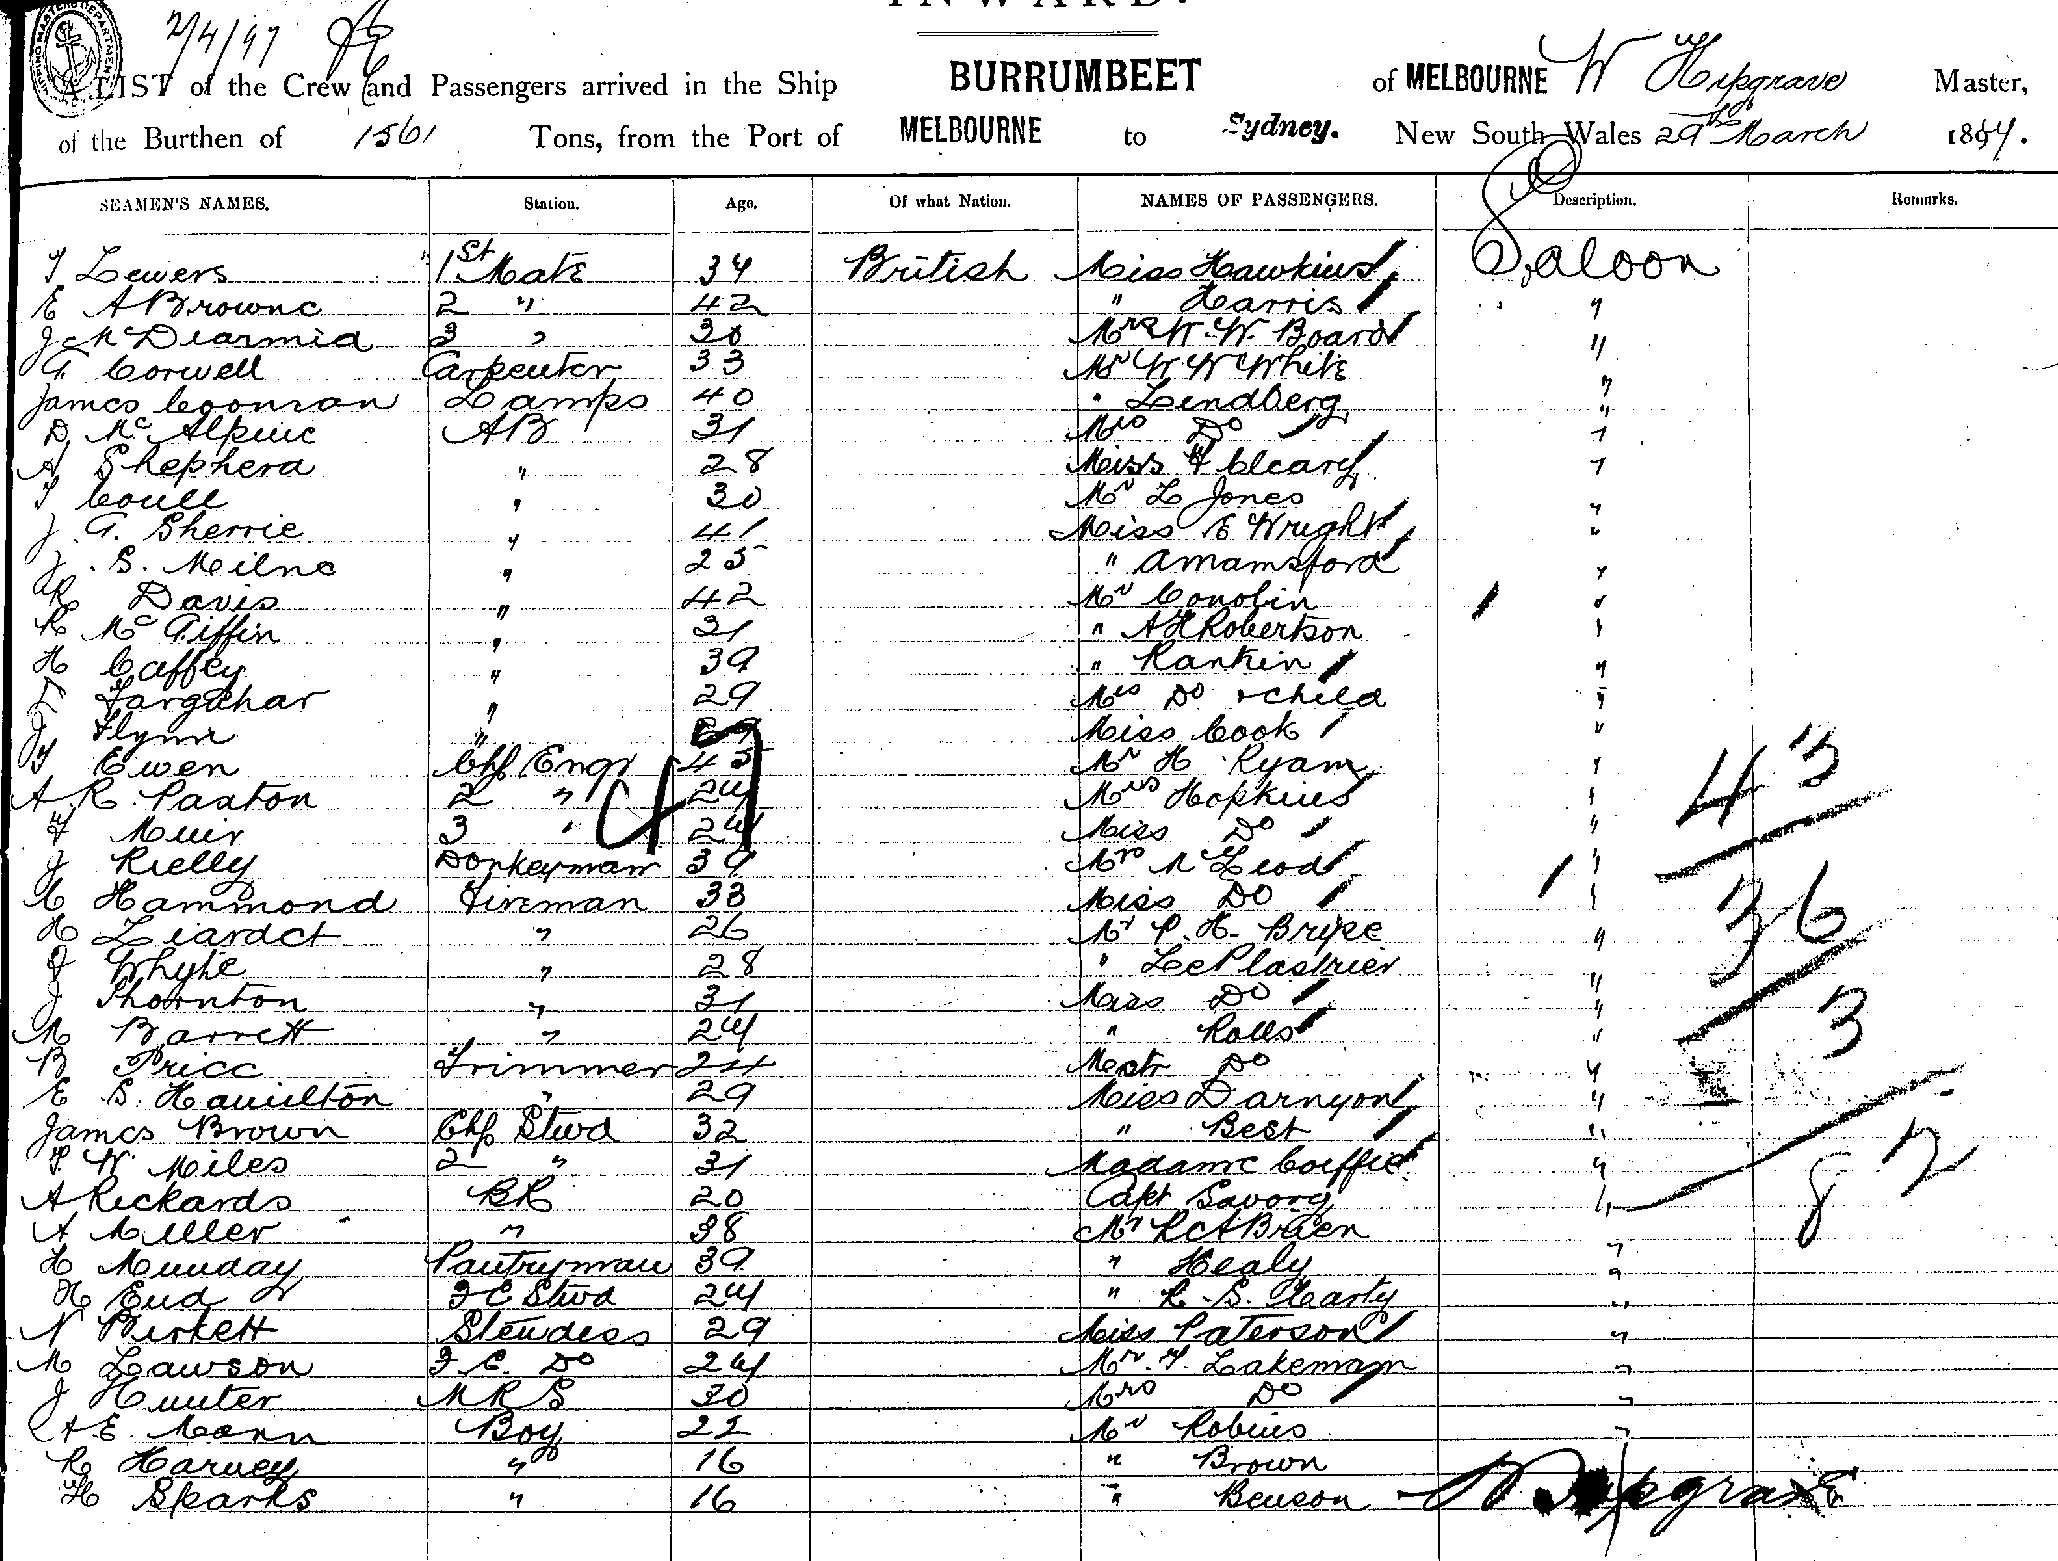 INWARD.
2/4/97
LIST of the Crew and Passengers arrived in the Ship BURRUMBEET of MELBOURNE W Hipgrave Master,
of the Burthen of 1561 Tons, from the Port of MELBOURNE to Sydney. New South Wales 29th March 1897.
SEAMEN'S NAMES. Station. Age. Of what Nation. NAMES OF PASSENGERS. Description. Remarks.
T Lewers 1st Mate 34 British Miss Hawkins Saloon
E A Browne 2 " 42 " Harris "
J Mc Diarmid 3 " 30 Mrs W. W. Board "
G. Corwell Carpenter 33 Mr W W White "
James Coonran Lamps 40 " Lendberg "
D. Mc Alpine AB 31 Mrs Do "
A Shepherd " 28 Miss Cleary "
T Coull " 30 Mr L Jones "
J. G. Sherrie " 41 Miss E Wright "
J. S. Milne " 25 " Amamsford "
R Davis " 42 Mr Conolin "
R Mc Giffin " 31 " A H Robertson "
H Caffey " 39 " Rankin "
Farquhar " 29 Mrs Do & child "
J Flynn " Miss Cook "
T Ewen Chf Engr 45 Mr H Ryam "
A R. Paxton 2 " 24 Mrs Hopkins "
F Muir 3 " 24 Miss Do "
J Rielly Donkeyman 39 Mrs Mc Leod "
C Hammond Fireman 33 Miss Do "
H Liardet " 26 Mr P. H. Bryce "
J Whyte " 28 " Le Plastrier "
J Thornton " 31 Miss Do "
M Barrett " 24 " Rolls "
B Price Trimmer 24 Mastr Do "
E S. Hamilton " 29 Miss Darnyon "
James Brown Chf Stwd 32 " Best "
T W Miles 2 " 31 Madame Coiffic "
A Rickards BR 20 Capt Savory "
A Miller " 38 Mr R C A Brien
H Munday Pantryman 39 " Healy "
H Eud F C Stwd 24 " R. S. Harty "
N Birkett Stewdess 29 Miss Paterson "
M Lawson F C. Do 24 Mr. Lakeman "
J Hunter M R S 30 Mrs Do "
A E. Mann Boy 22 Mr Robins "
R Harvey " 16 " Brown
H Sparks " 16 " Benson W Hipgrave
47
43
36
3
82